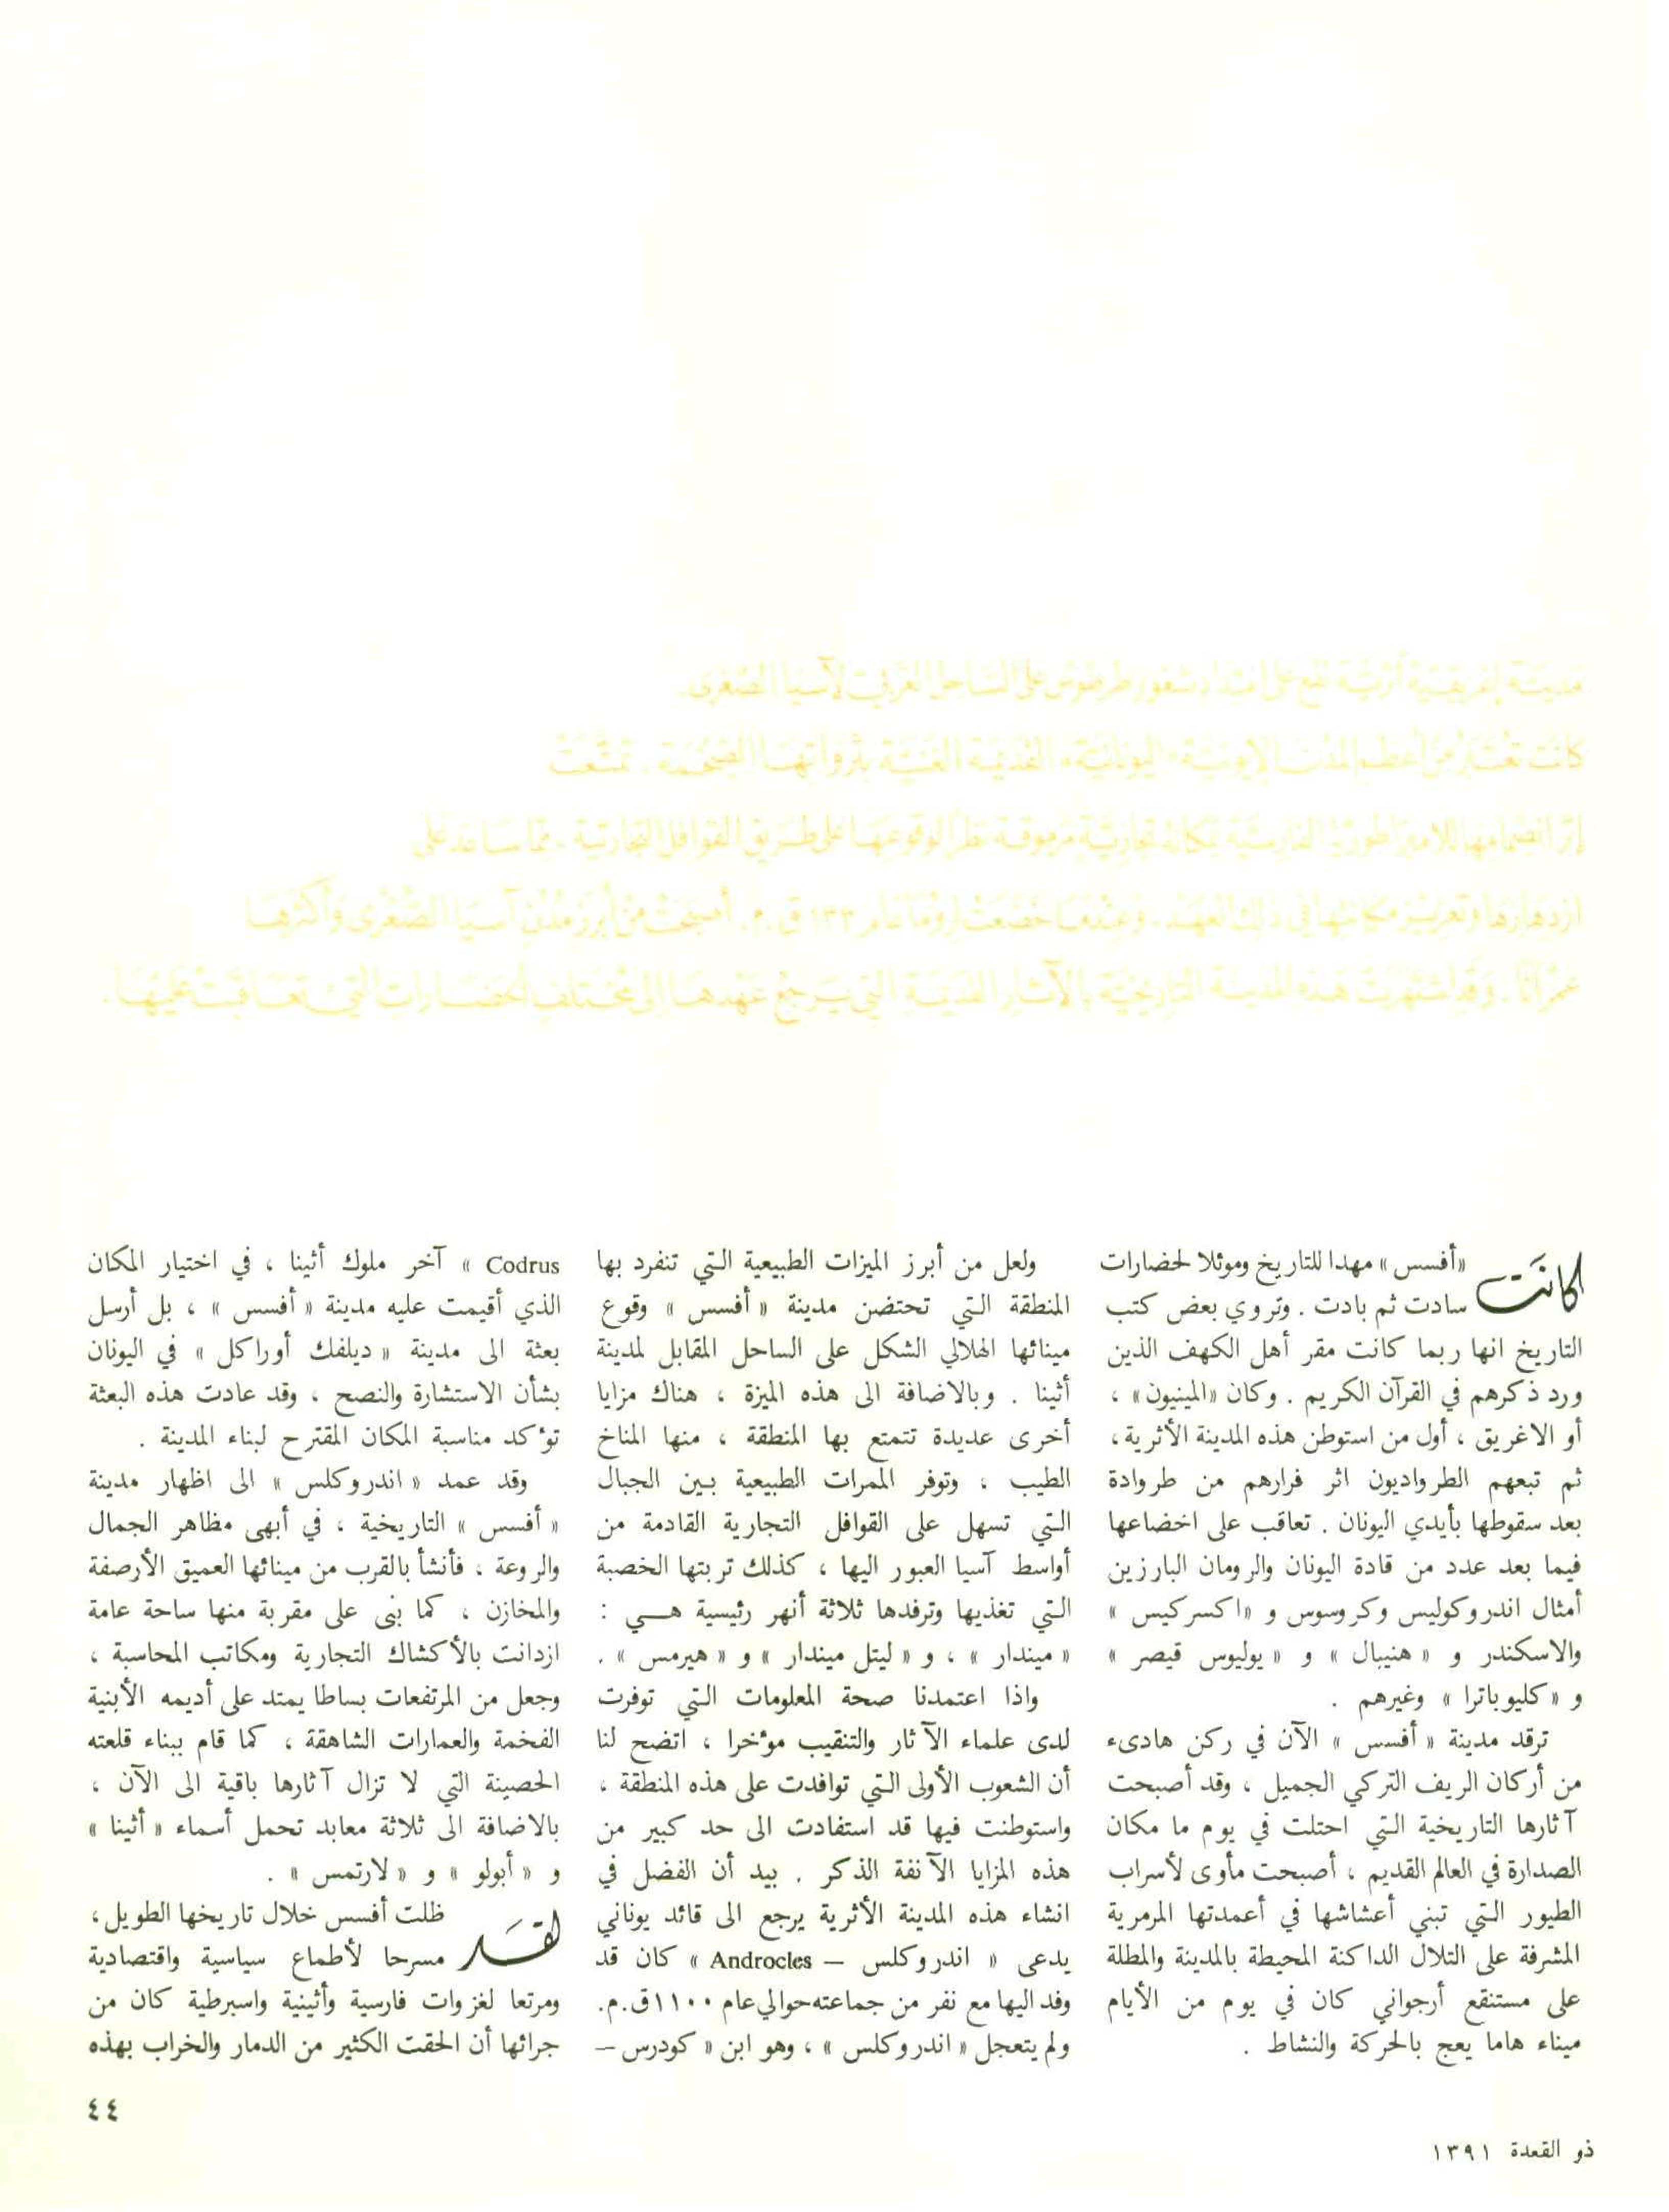 مدينة إغريقية أثرية تقع على امتداد ثغور طرطوس على الساحل الغربي لآسيا الصغرى.
كانت تعتبر من أعظم المدن الإيونية "اليونانية" القديمة الغنية بثرواتها الضخمة. تمتعت
إثر انضمامها للامبراطورية الفارسية بمكانة تجارية مرموقة نظرا لوقوعها على طريق القوافل التجارية، مما ساعد على
ازدهارها وتعزيز مكانتها في ذلك العهد. وعندما خضعت لروما عام ١٣٣ ق.م. أصبحت من أبرز مدن آسيا الصغرى وأكثرها
عمرانا. وقد اشتهرت هذه المدينة التاريخية بالآثار القديمة التي يرجع عهدها إلى مختلف الحضارات التي تعاقبت عليها.
كانت «أفسس» مهدا للتاريخ وموئلا لحضارات
سادت ثم بادت . وتروي بعض كتب
التاريخ انها ربما كانت مقر أهل الكهف الذين
ورد ذكرهم في القرآن الكريم . وكان «المينيون» ،
أو الاغريق ، أول من استوطن هذه المدينة الأثرية،
ثم تبعهم الطرواديون اثر فرارهم من طروادة
بعد سقوطها بأيدي اليونان . تعاقب على اخضاعها
فيما بعد عدد من قادة اليونان والرومان البارزين
أمثال اندروكوليس وكروسوس و «اكسركيس »
والاسكندر و « هنيبال » و « يوليوس قيصر »
و « كليوباترا » وغيرهم .
ترقد مدينة « أفسس » الآن في ركن هادىء
من أركان الريف التركي الجميل ، وقد أصبحت
آثارها التاريخية التي احتلت في يوم ما مكان
الصدارة في العالم القديم ، أصبحت مأوى لأسراب
الطيور التي تبني أعشاشها في أعمدتها المرمرية
المشرفة على التلال الداكنة المحيطة بالمدينة والمطلة
على مستنقع أرجواني كان في يوم من الأيام
ميناء هاما يعج بالحركة والنشاط .
ولعل من أبرز الميزات الطبيعية التي تنفرد بها
المنطقة التي تحتضن مدينة « أفسس » وقوع
مينائها الهلالي الشكل على الساحل المقابل لمدينة
أثينا . وبالاضافة الى هذه الميزة ، هناك مزايا
أخرى عديدة تتمتع بها المنطقة ، منها المناخ
الطيب ، وتوفر الممرات الطبيعية بين الجبال
التي تسهل على القوافل التجارية القادمة من
أواسط آسيا العبور اليها ، كذلك تربتها الخصبة
التي تغذيها وترفدها ثلاثة أنهر رئيسية هي :
« ميندار » ، و « ليتل ميندار » و « هيرمس » .
واذا اعتمدنا صحة المعلومات التي توفرت
لدى علماء الآثار والتنقيب مؤخرا ، اتضح لنا
أن الشعوب الأولى التي توافدت على هذه المنطقة ،
واستوطنت فيها قد استفادت الى حد كبير من
هذه المزايا الآنفة الذكر . بيد أن الفضل في
انشاء هذه المدينة الأثرية يرجع الى قائد يوناني
يدعى « اندروكلس – Androcles » كان قد
وفد اليها مع نفر من جماعته حوالي عام ١١٠٠ق.م.
ولم يتعجل « اندروكلس » ، وهو ابن « كودرس –
Codrus » آخر ملوك أثينا ، في اختيار المكان
الذي أقيمت عليه مدينة « أفسس » ، بل أرسل
بعثة الى مدينة « ديلفك أوراكل » في اليونان
بشأن الاستشارة والنصح ، وقد عادت هذه البعثة
تؤكد مناسبة المكان المقترح لبناء المدينة .
وقد عمد « اندروكلس » الى اظهار مدينة
« أفسس » التاريخية ، في أبهى مظاهر الجمال
والروعة ، فأنشأ بالقرب من مينائها العميق الأرصفة
والمخازن ، كما بنى على مقربة منها ساحة عامة
ازدانت بالأكشاك التجارية ومكاتب المحاسبة ،
وجعل من المرتفعات بساطا يمتد على أديمه الأبنية
الفخمة والعمارات الشاهقة ، كما قام ببناء قلعته
الحصينة التي لا تزال آثارها باقية الى الآن ،
بالاضافة الى ثلاثة معابد تحمل أسماء « أثينا »
و « أبولو » و « لارتمس » .
لقد ظلت أفسس خلال تاريخها الطويل،
مسرحا لأطماع سياسية واقتصادية
ومرتعا لغزوات فارسية وأثينية واسبرطية كان من
جرائها أن الحقت الكثير من الدمار والخراب بهذه
٤٤
ذو القعدة ١٣٩١